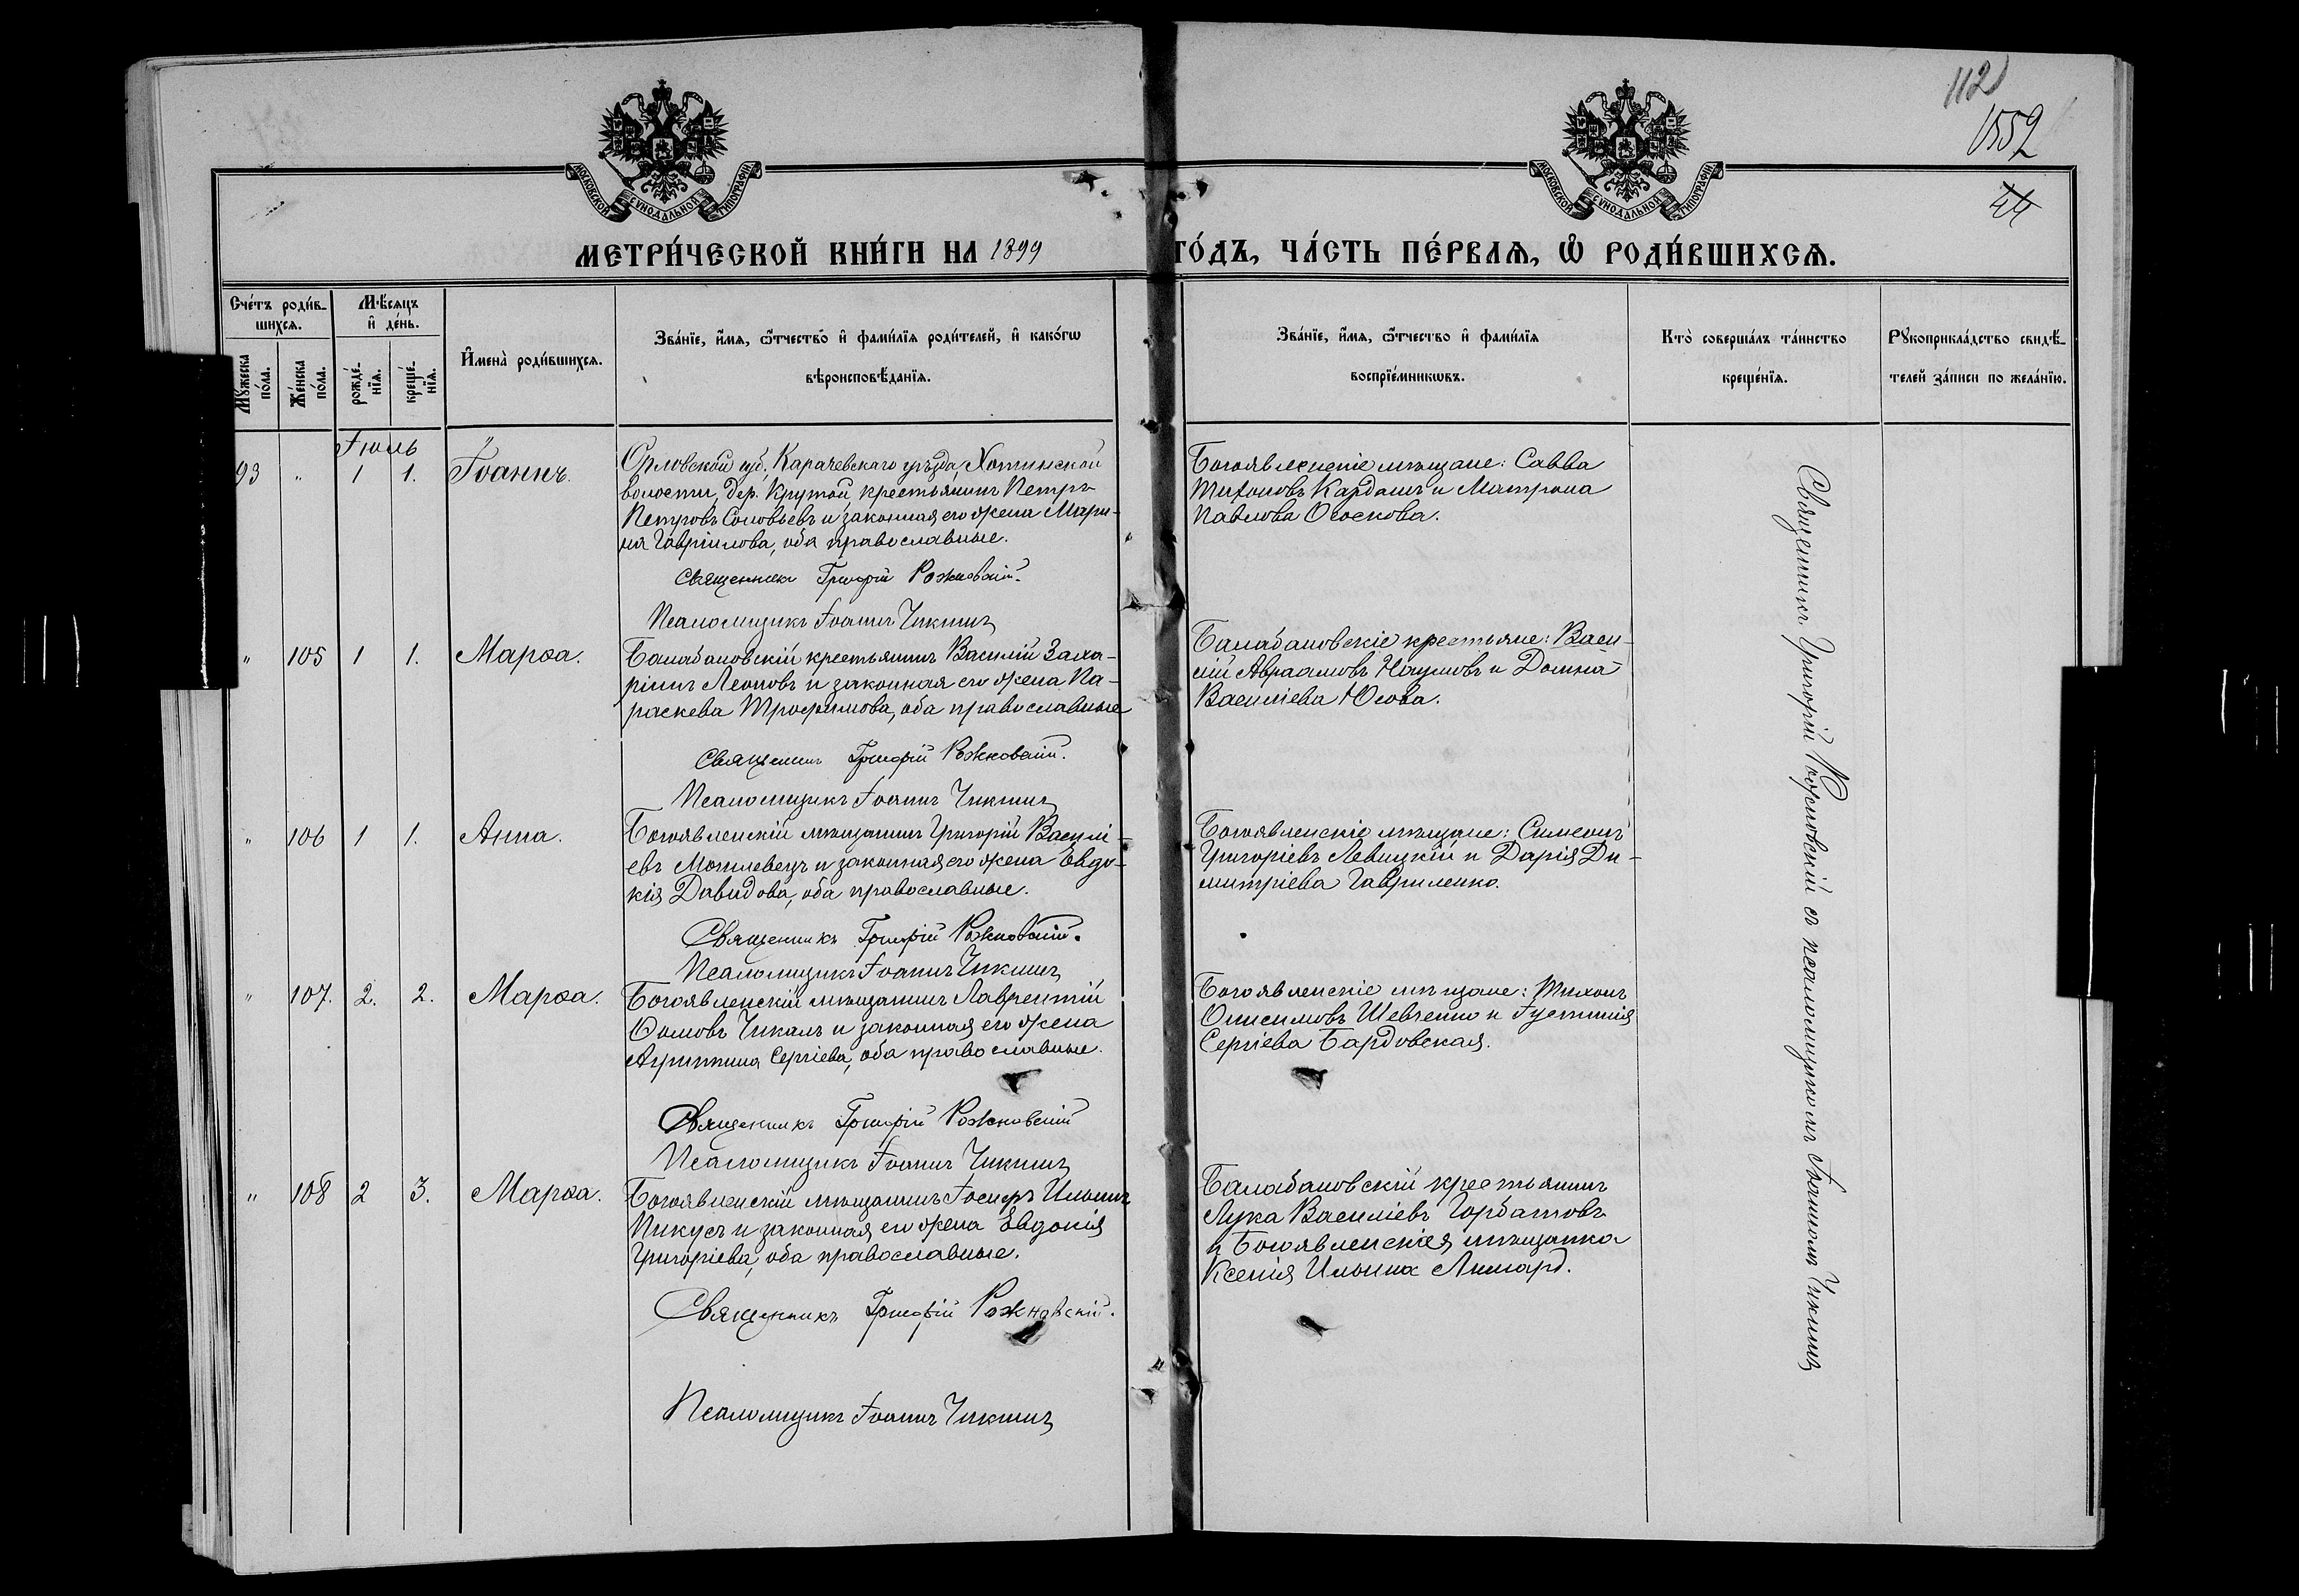 112
1552
44
МОСКОВСКОЙ СѴНОДАЛЬНОЙ ТИПОГРАФІИ.
МОСКОВСКОЙ СѴНОДАЛЬНОЙ ТИПОГРАФІИ.
МЕТРИ́ЧЕСКОЙ КНИ́ГИ НА 1899 ГО́ДЪ, ЧА́СТЬ ПЕ́РВАѦ, Ѽ РОДИ́ВШИХСѦ.
Сче́тъ роди́в-
шихсѧ.
Мꙋ́жеска по́ла.
Же́нска по́ла.
Мѣ́сѧцъ
и҆ де́нь.
рожде́-
нїѧ.
креще́-
нїѧ.
И҆мена̀ роди́вшихсѧ.
Зва́нїе, и҆́мѧ, ѻ҆́тчество и҆ фами́лїѧ роди́телей, и҆ како́гѡ
вѣроисповѣ́данїѧ.
Зва́нїе, и҆́мѧ, ѻ҆́тчество и҆ фами́лїѧ
воспрїе́мникѡвъ.
Кто̀ соверша́лъ та́инство
креще́нїѧ.
Рꙋкоприкла́дство свидѣ́-
телей за́писи по жела́нїю.
Іюль
93 " 1 1. Іоаннъ.
Орловской губ., Карачевскаго уѣзда, Хотинской
волости, дер. Крутой, крестьянинъ Петръ
Петровъ Соловьевъ и законная его жена Мари-
на Гавріилова, оба православные.
Священникъ Григорій Рожновскій.
Псаломщикъ Іоаннъ Чикишъ
Богоявленскіе мѣщане: Савва
Тихоновъ Кардашъ и Матрона
Павлова Оголюкова.
" 105 1 1. Марѳа.
Балабановскій крестьянинъ Василій Заха-
ріинъ Леоновъ и законная его жена Па-
раскева Трофимова, оба православные
Священникъ Григорій Рожновскій.
Псаломщикъ Іоаннъ Чикишъ
Балабановскіе крестьяне: Васи-
лій Авраамовъ Наумовъ и Домна
Василіева Юсова.
" 106 1 1. Анна.
Богоявленскій мѣщанинъ Григорій Василі-
евъ Могилевецъ и законная его жена Евдо-
кія Давидова, оба православные.
Священникъ Григорій Рожновскій.
Псаломщикъ Іоаннъ Чикишъ
Богоявленскіе мѣщане: Симеонъ
Григоріевъ Левицкій и Дарія Ди-
митріева Гавриленко.
" 107. 2. 2. Марѳа.
Богоявленскій мѣщанинъ Лаврентій
Ѳомовъ Чикалъ и законная его жена
Агриппина Сергіева, оба православные.
Священникъ Григорій Рожновскій
Псаломщикъ Іоаннъ Чикишъ
Богоявленскіе мѣщане: Тихонъ
Онисимовъ Шевченко и Іустинія
Сергіева Бардовская.
" 108 2 3. Марѳа.
Богоявленскій мѣщанинъ Іосифъ Ильинъ
Пикусъ и законная его жена Евдокія
Григоріева, оба православные.
Священникъ Григорій Рожновскій.
Псаломщикъ Іоаннъ Чикишъ
Балабановскій крестьянинъ
Лука Василіевъ Горбатовъ
и Богоявленская мѣщанка
Ксенія Ильина Лимард.
Священникъ Григорій Рожновскій съ псаломщикомъ Іоанномъ Чикишъ